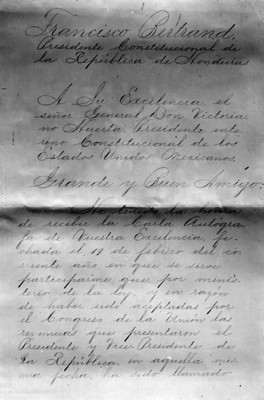 Francisco Bertrand,
Presidente Constitucional de
la República de Honduras
A Su Excelencia el
señor General Don Victoria-
no Huerta Presidente inte-
rino Constitucional de los
Estados Unidos Mexicanos.
Grande y Buen Amigo:
He tenido la honra
de recibir la Carta Autógra-
fa de Vuestra Excelencia, fe-
chada el 19 de febrero del co-
rriente año, en que se sirve
participarme que por minis-
terio de la ley, y en razón
de haber sido aceptadas por
el Congreso de la Unión las
renuncias que presentaron el
Presidente y Vice-Presidente de
la República, en aquella mis-
ma fecha, ha sido llamado